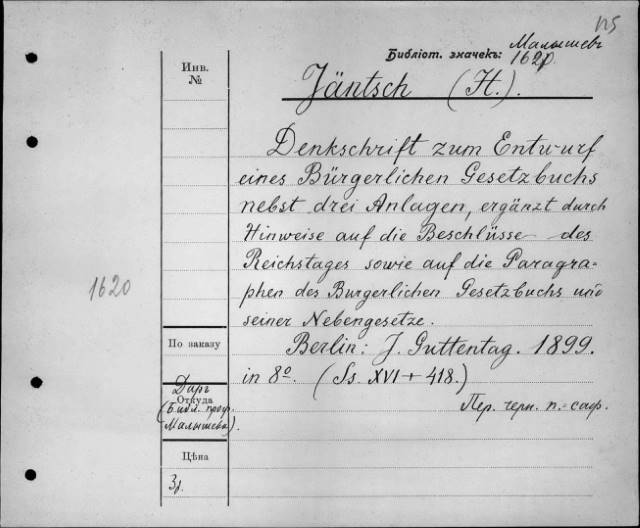 125
Библіот. значекъ: Малышевъ
1620.
Инв.
№
Jäntsch (H.).
Denkschrift zum Entwurf
eines Bürgerlichen Gesetzbuchs
nebst drei Anlagen, ergänzt durch
Hinweise auf die Beschlüsse des
Reichstages sowie auf die Paragra-
phen des Burgerlichen Gesetzbuchs und
seiner Nebengesetze.
1620
По заказу
Berlin: J. Guttentag. 1899.
in 8º. (Ss. XVI + 418.)
Даръ
Откуда
(Библ. проф.
Малышева).
Пер. черн. п.-саф.
Цѣна
3р.